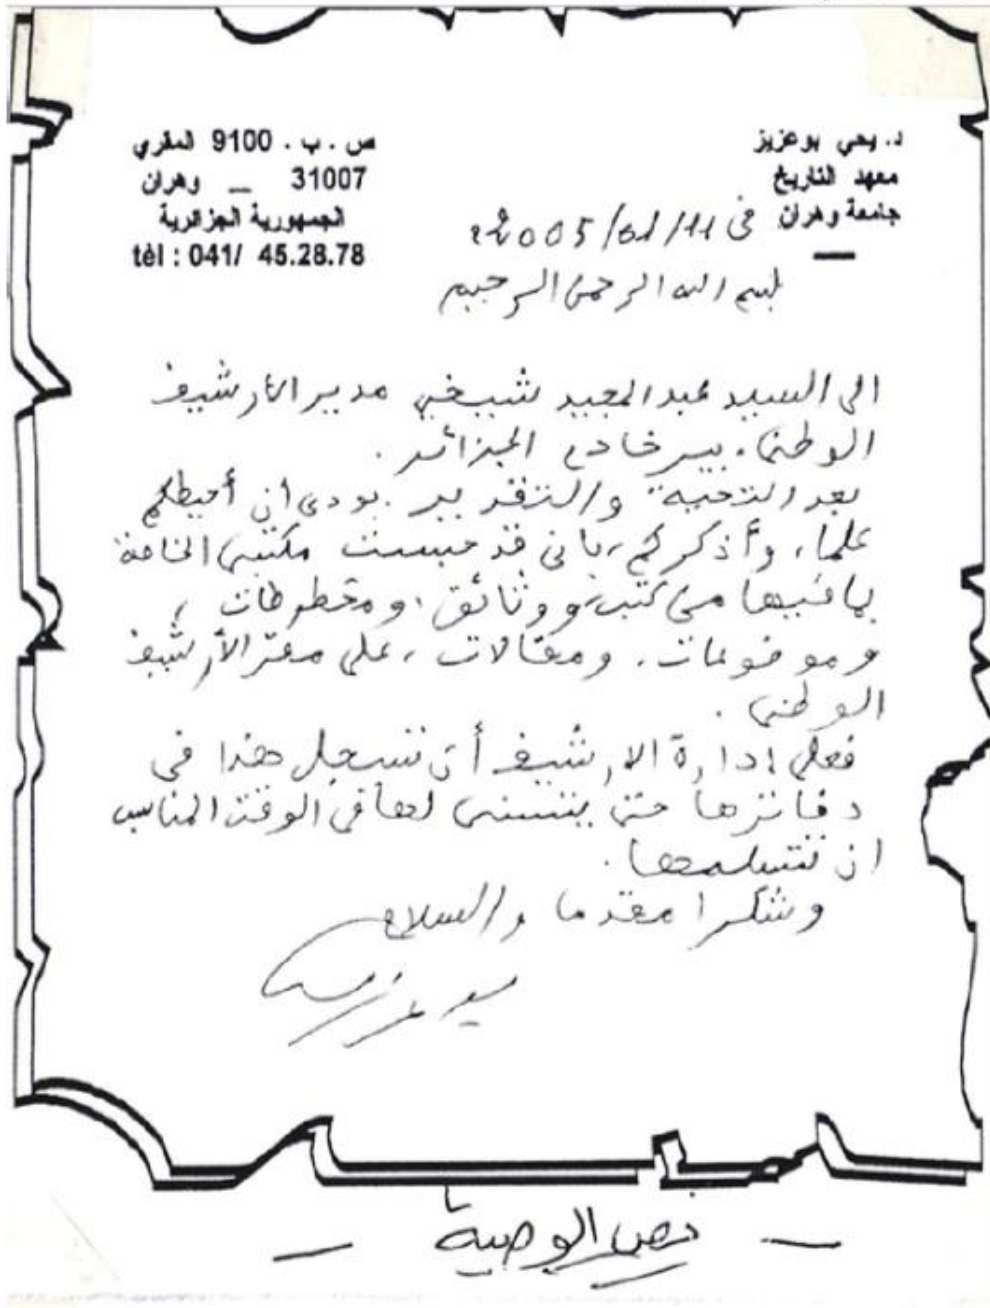 د. يحي بوعزيز
معهد التاريخ
جامعة وهران
ص . ب . 9100 المقري
31007 _ وهران
الجمهورية الجزائرية
tèl : 041/ 45.28.78
في 2005/01/11
بسم الله الرحمن الرحيم
الى السيد عبد المجيد شيخي مدير الأرشيف
الوطني. بير خادم الجزائر .
بعد التحية والتقدير . بودي أن أحيطكم
علما، وأذكركم، بأني قد حبست مكتبتي الخاصة
بما فيها من كتب، ووثائق، ومخطوطات ،
وموضوعات، ومقالات ، على مقر الأرشيف
الوطني .
فعلى إدارة الارشيف أن تسجل هذا في
دفاترها حتى يتسنى لها في الوقت المناسب
ان تتسلمها .
وشكرا مقدما والسلام
— نص الوصية —